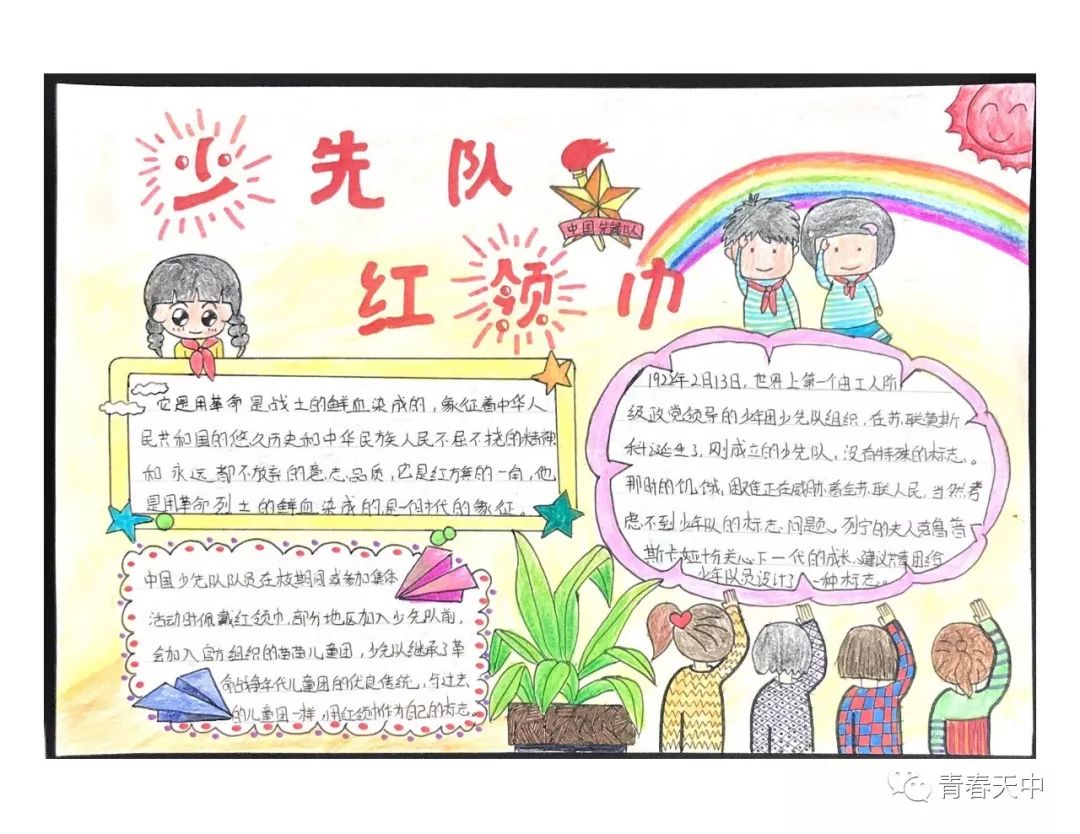 少先队
中国少先队
红领巾
它是用革命是战士的鲜血染成的,象征着中华人
民共和国的悠久历史和中华民族人民不屈不挠的精神
和永远都不放弃的意志品质,它是红方旗的一角,他
是用革命烈士的鲜血染成的是一个时代的象征。
1922年2月13日,世界上第一个由工人阶
级政党领导的少年团少先队组织,在苏联莫斯
科诞生了,刚成立的少先队,没有特殊的标志。
那时的饥饿,困难正在威胁着全苏联人民,当然考
虑不到少年队的标志问题。列宁的夫人克鲁普
斯卡娅十分关心下一代的成长,建议共青团给
少年队员设计了一种标志。
中国少先队队员在校期间或参加集体
活动时佩戴红领巾,部分地区加入少先队前,
会加入官方组织的苗苗儿童团,少先队继承了革
命战争年代儿童团的优良传统,与过去
的儿童团一样,用红领巾作为自己的标志
青春天中